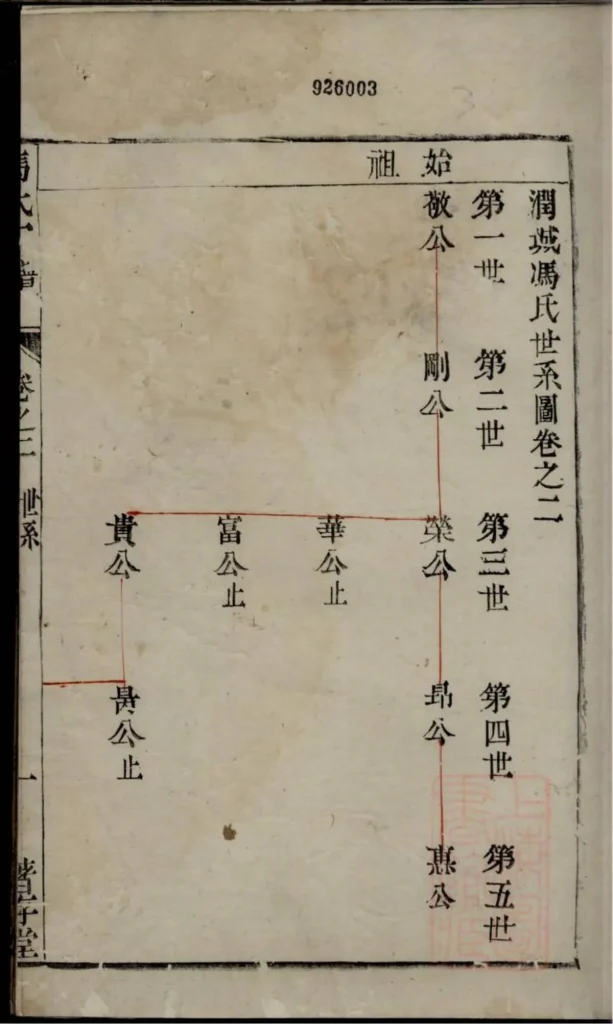 926003
潤城馮氏世系圖卷之二
第一世 第二世 第三世 第四世 第五世
始祖
敬公 剛公 榮公 昂公 惠公
華公止
富公止
貴公 公止
世系
一